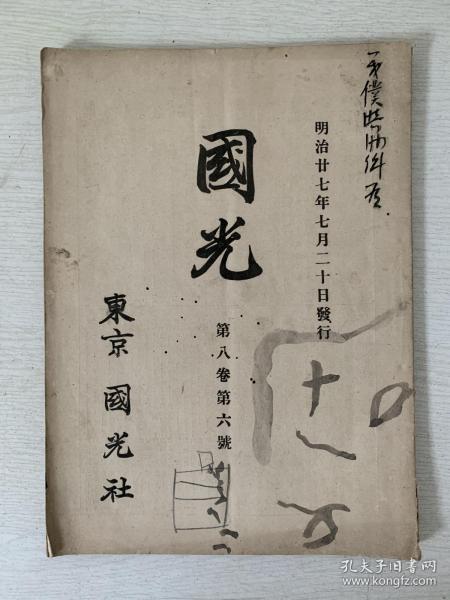 明治廿七年七月二十日發行
國光
第八卷第六號
東京 國光社
十
孔夫子旧书网
www.kongfz.com